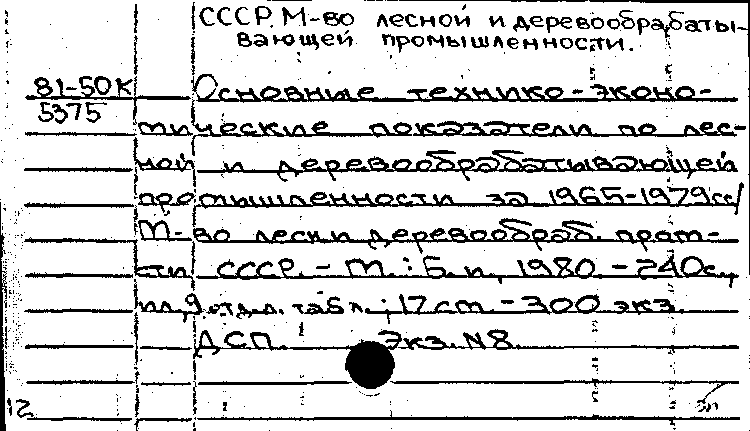 СССР. М-во лесной и деревообрабаты-
вающей промышленности.
81-50К Основные технико-эконо-
5375
мические показатели по лес-
ной и деревообрабатывающей
промышленности за 1965-1979гг/
М-во лесн и деревообраб. пром-
сти СССР. - М. : Б. и, 1980. - 240с.,
ил, 9 отд. л. табл.; 17 cm. - 300 экз.
ДСП. Экз. N8.
12